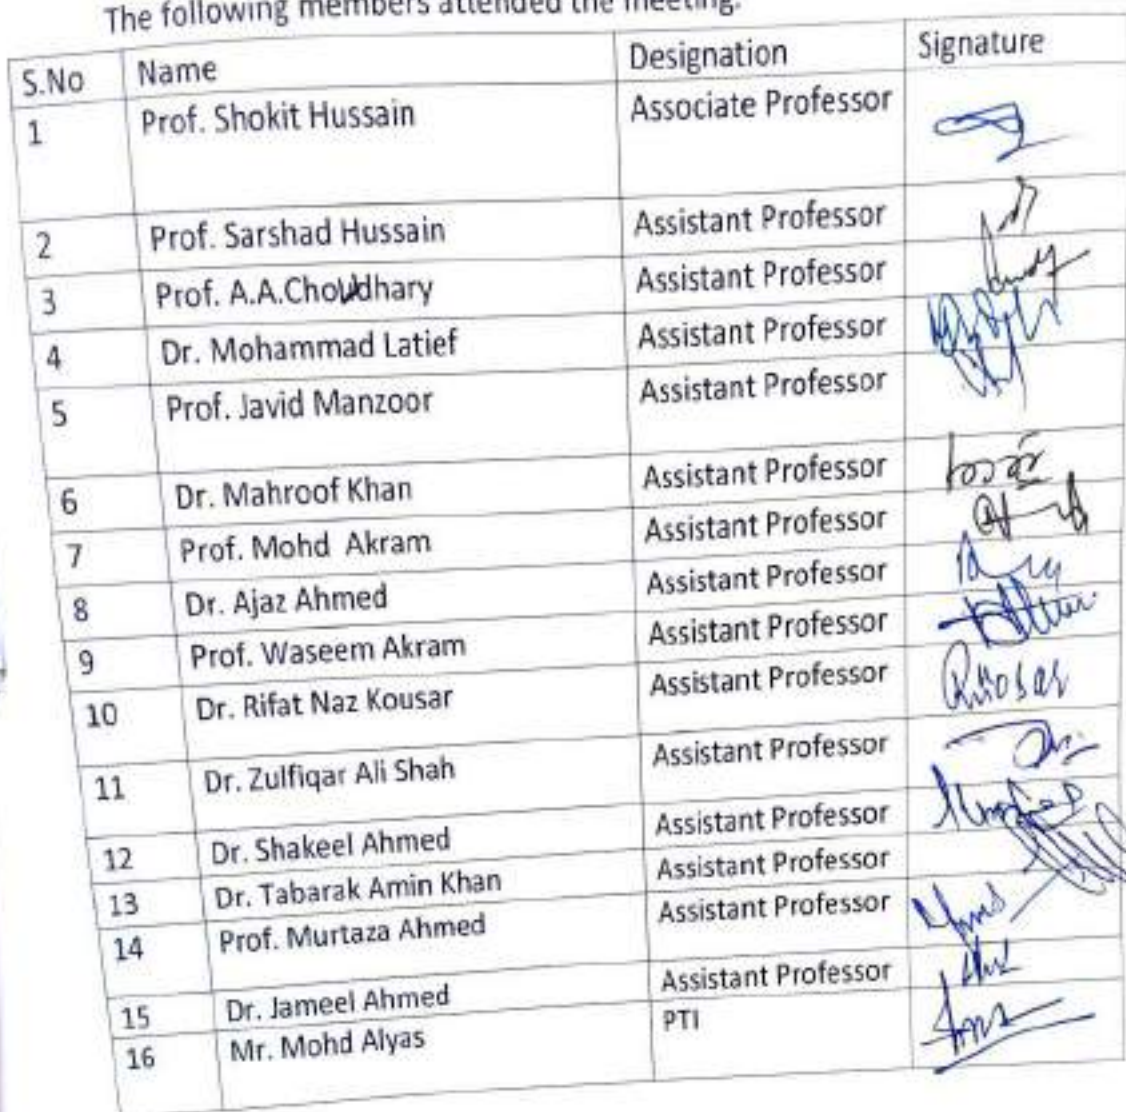 The following members attended the meeting.
S.No Name Designation Signature
1 Prof. Shokit Hussain Associate Professor
2 Prof. Sarshad Hussain Assistant Professor
3 Prof. A.A.Choudhary Assistant Professor
4 Dr. Mohammad Latief Assistant Professor
5 Prof. Javid Manzoor Assistant Professor
6 Dr. Mahroof Khan Assistant Professor
7 Prof. Mohd Akram Assistant Professor
8 Dr. Ajaz Ahmed Assistant Professor
9 Prof. Waseem Akram Assistant Professor
10 Dr. Rifat Naz Kousar Assistant Professor
11 Dr. Zulfiqar Ali Shah Assistant Professor
12 Dr. Shakeel Ahmed Assistant Professor
13 Dr. Tabarak Amin Khan Assistant Professor
14 Prof. Murtaza Ahmed Assistant Professor
15 Dr. Jameel Ahmed Assistant Professor
16 Mr. Mohd Alyas PTI